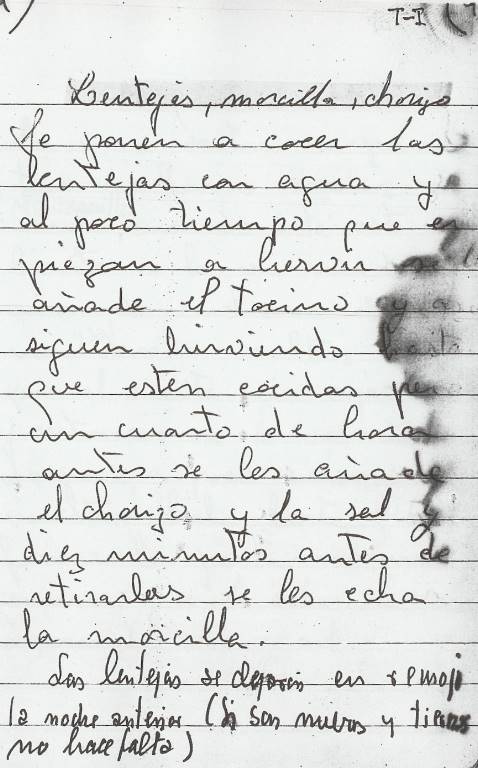 T-I
Lentejas, morcilla, chorizo
Se ponen a cocer las
lentejas con agua y
al poco tiempo que em
piezan a hervir se
añade el tocino y
siguen hirviendo hasta
que esten cocidas
un cuarto de hora
antes se les añade
el chorizo y la sal y
diez minutos antes de
retirarlas se les echa
la morcilla.
Las lentejas se dejarán en remojo
la noche anterior (si son nuevas y tiernas
no hace falta)